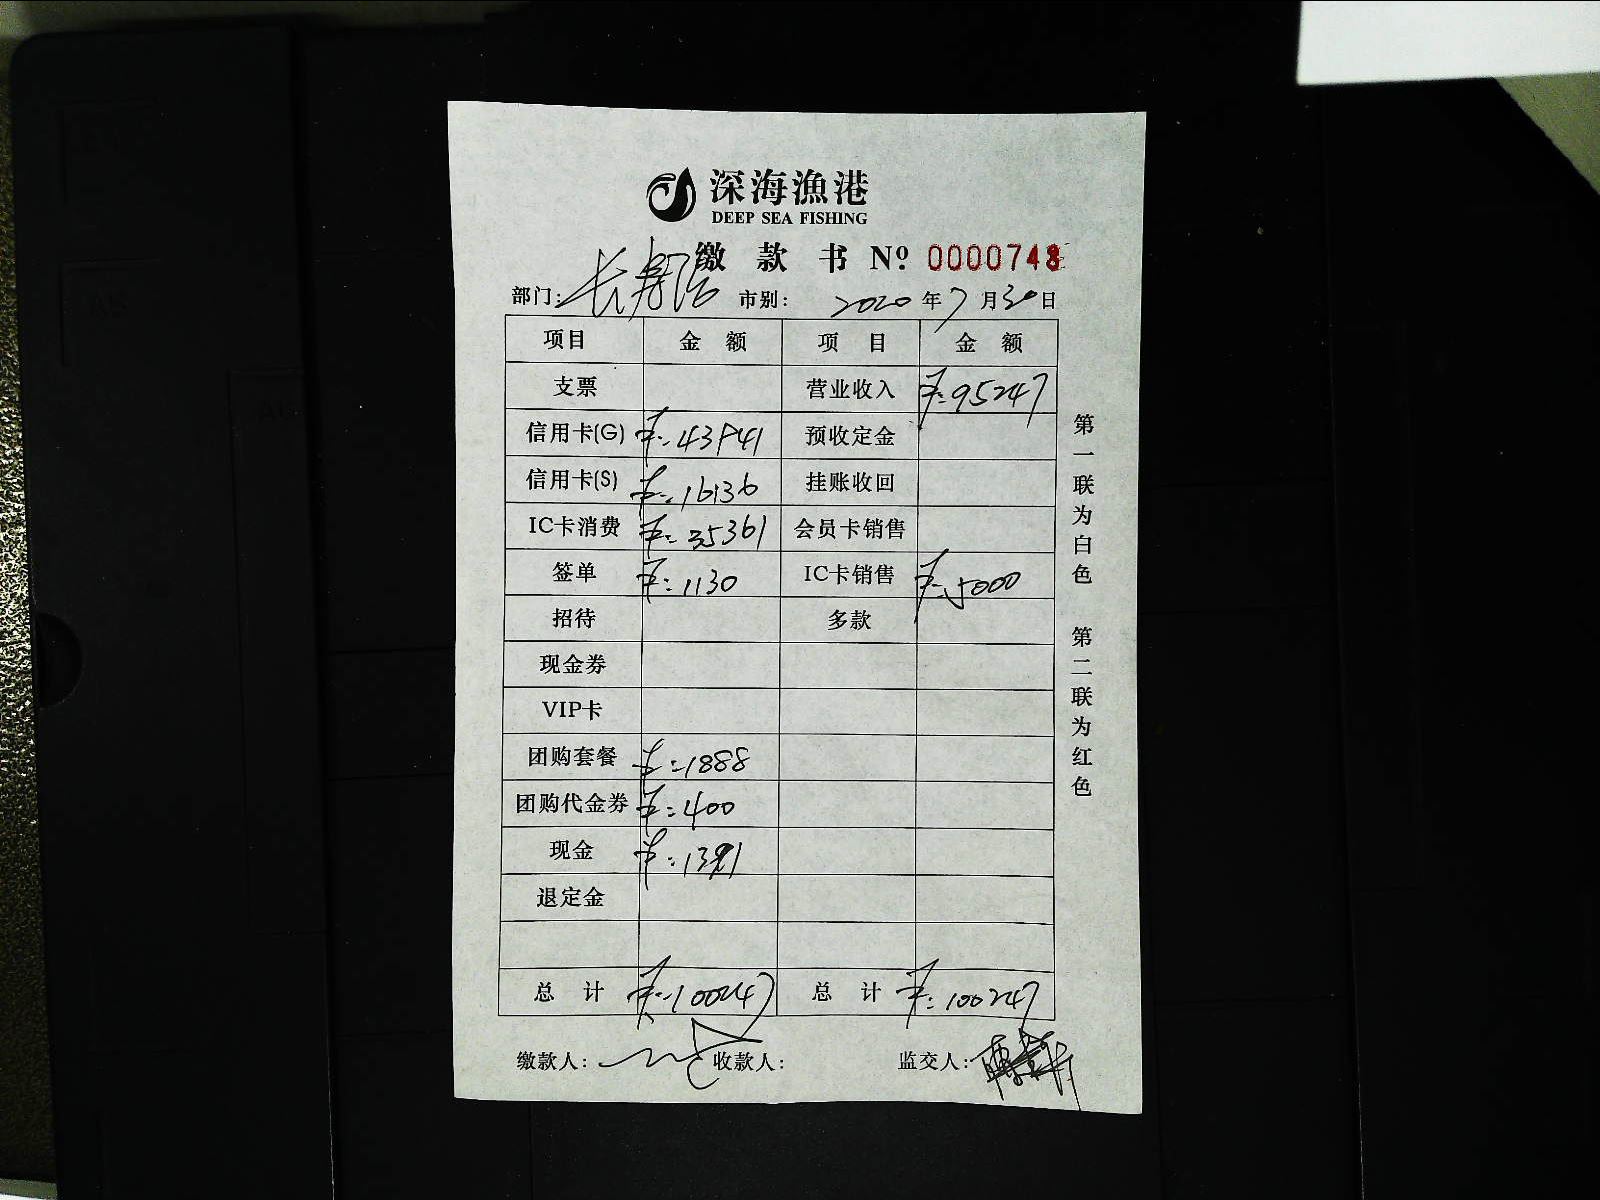 深海漁港
DEEP SEA FISHING
缴款书 Nº 0000748
部门: 长寿路 市别: 2020年7月30日
项目 金额 项目 金额
支票 营业收入 ¥:95247
信用卡(G) ¥:43941 预收定金
信用卡(S) ¥:16136 挂账收回
IC卡消费 ¥:35361 会员卡销售
签单 ¥:1130 IC卡销售 ¥:5000
招待 多款
现金券
VIP卡
团购套餐 ¥:1888
团购代金券 ¥:400
现金 ¥:1391
退定金
总计 ¥:100247 总计 ¥:100247
缴款人: 收款人: 监交人:
第一联为白色 第二联为红色